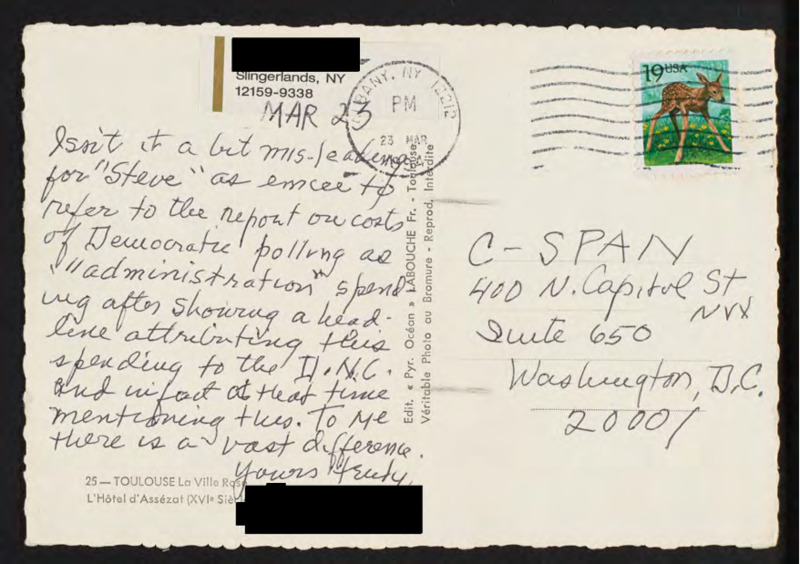 Slingerlands, NY
12159-9338
MAR 23
ALBANY, NY 12212
PM
23 MAR
19 USA
Isn't it a bit mis-leading
for "Steve" as emcee to
refer to the report on costs
of Democratic polling as
"administration" spend-
ing after showing a head-
line attributing this
spending to the D.N.C.
and in fact at that time
mentioning this. To me
there is a vast difference.
Yours truly,
25 — TOULOUSE La Ville Rose
L'Hôtel d'Assézat (XVIe Siè
Edit. « Pyr. Océan » LABOUCHE Fr. - Toulouse
Véritable Photo au Bromure - Reprod. Interdite
C-SPAN
400 N. Capitol St
NW
Suite 650
Washington, D.C.
20001